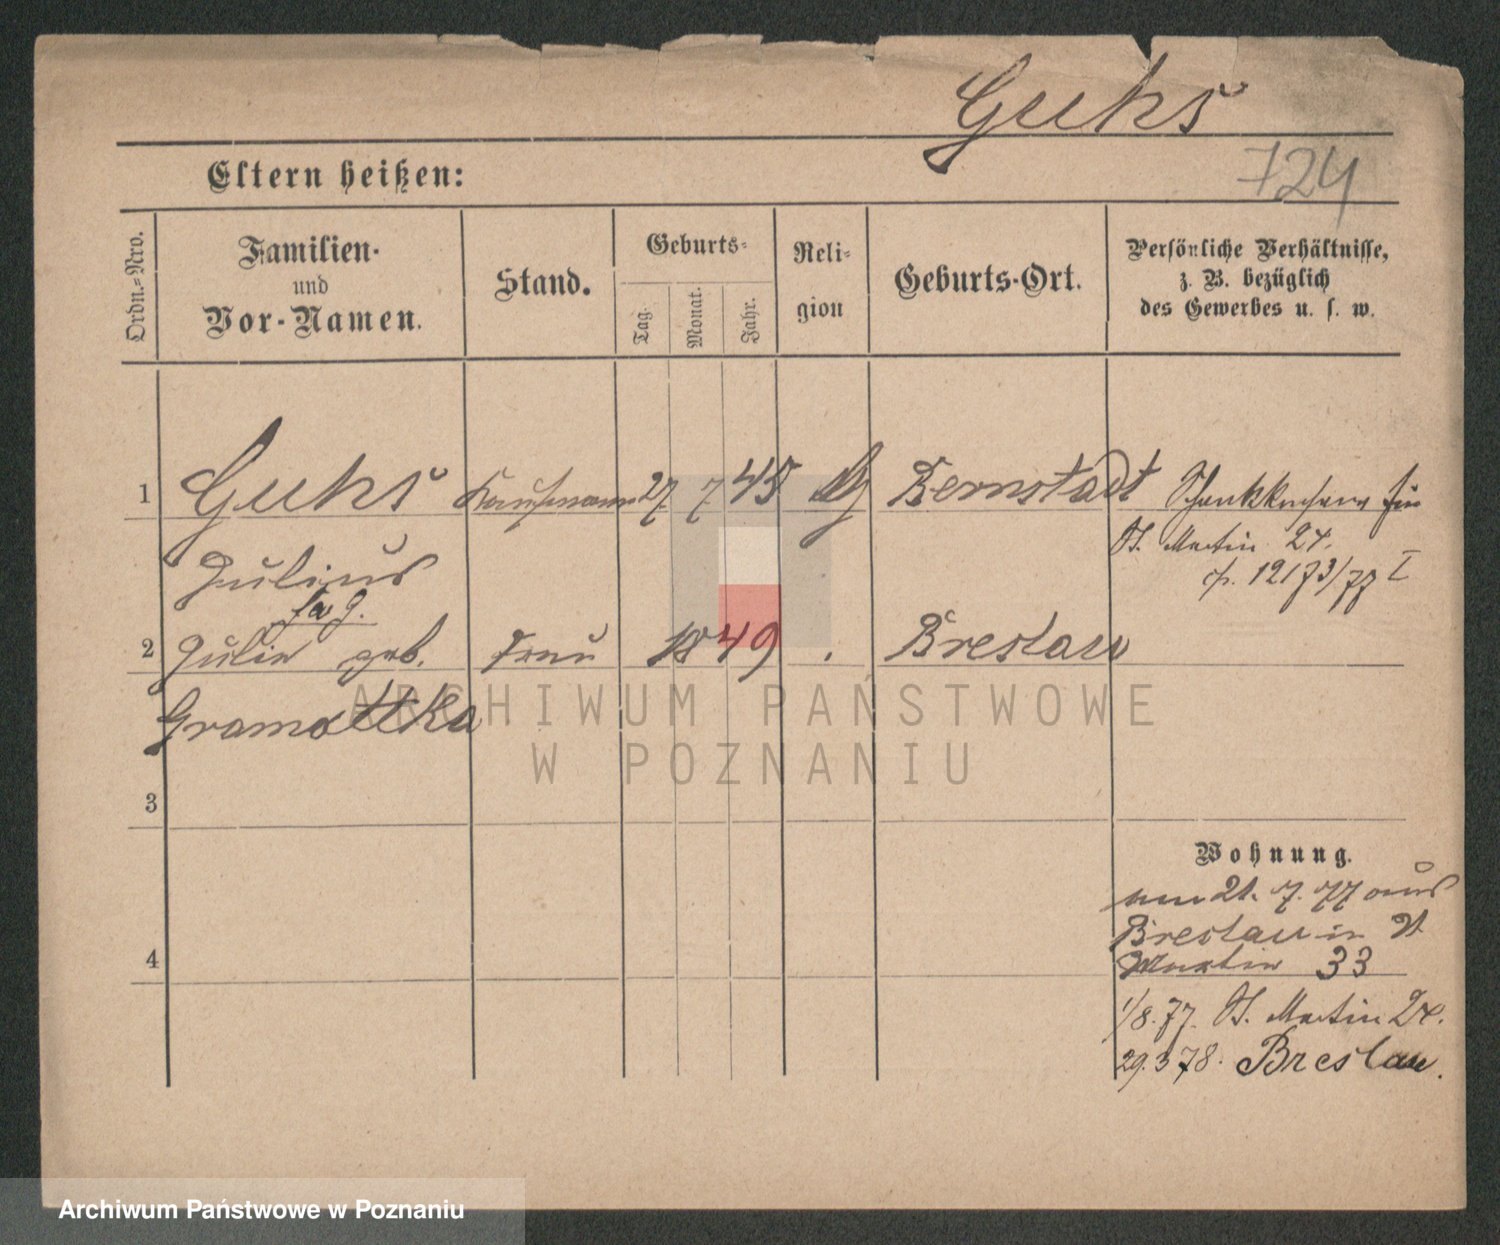 Guhs
724
Eltern heißen:
Ordn.-Nro.
Familien-
und
Vor-Namen.
Stand.
Geburts-
Tag.
Monat.
Jahr.
Reli-
gion
Geburts-Ort.
Persönliche Verhältnisse,
z. B. bezüglich
des Gewerbes u. s. w.
1 Guhs Kaufmann 27. 7. 45 Bernstadt
St. Martin 24.
12173/77 I
Julius
2 Julie geb. Frau 1849 Breslau
Gramottka
3
Wohnung.
21. 7. 77 aus
Breslau in St.
4
Martin 33
1/8. 77. St. Martin 24.
29.3 78. Breslau.
ARCHIWUM PAŃSTWOWE
W POZNANIU
Archiwum Państwowe w Poznaniu